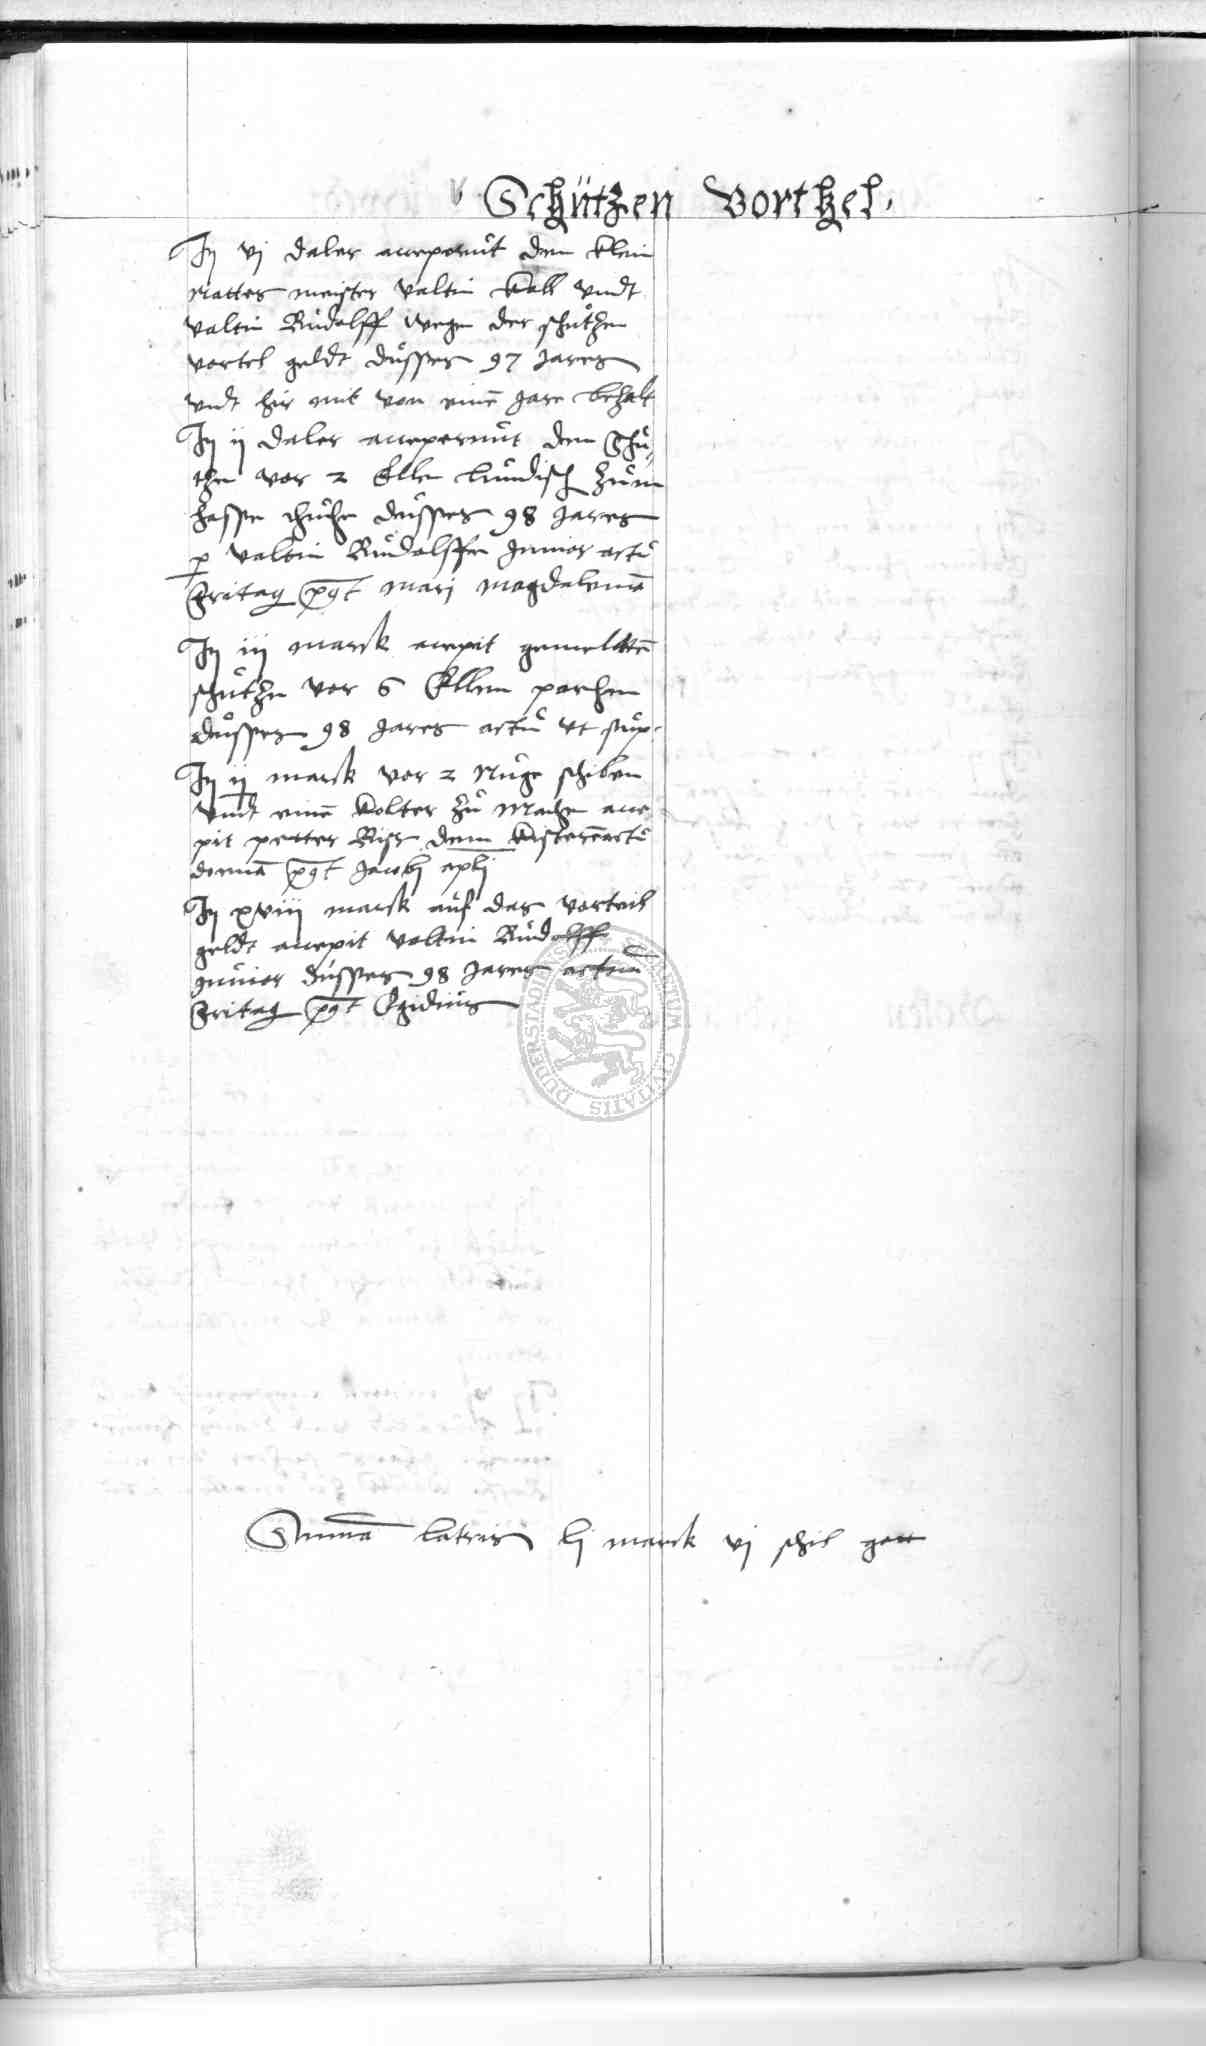 Schützen Vorthel.
Jn vj daler acceperunt dem klein
meister valtin Koll vndt
valtin Rudolff wegen der schutzen
vortel geldt dusses 97 Jares
vndt hir mit von eine Jare behalt
Jn ij daler acceperunt dem Schu„
tzen vor 2 Elle lundisch zum
dusses 98 Jares
p valtin Rudolffen Junior actu
fritag post mari magdalena
Jn iij marck accepit gemeltte
schutzen vor 6 Ellen parchen
dusses 98 Jares actu ut sup.
Jn ij marck vor 2 Nuge schiben
vndt eine Kolter zu machen acce
pit petter dem actu
post Jacobj aplj
Jn xviij marck auf das vorteil
geldt accepit valtin Rudolff
Junior dusses 98 Jares actum
fritag post Egidius
DUDERSTADIENSIS CIVITATIS
Summa lateris lj marck vj schil gott